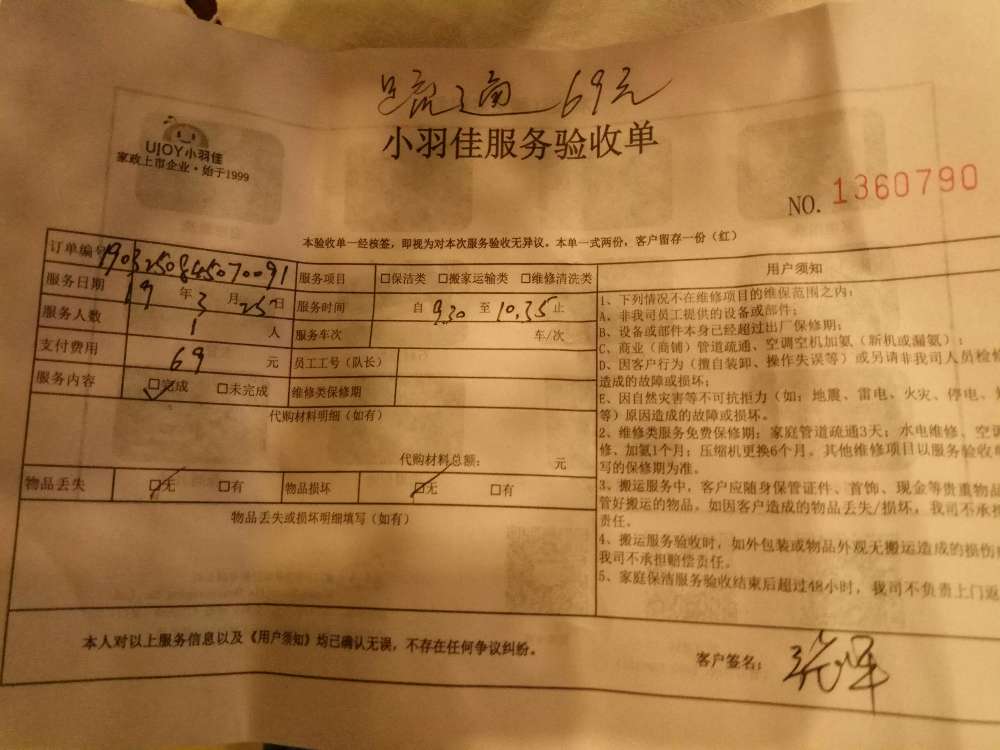 疏通 69元
UJOY小羽佳
家政上市企业·始于1999
小羽佳服务验收单
NO. 1360790
本验收单一经核签，即视为对本次服务验收无异议。本单一式两份，客户留存一份（红）
订单编号 1903250845070091 服务项目 □保洁类 □搬家运输类 □维修清洗类
服务日期 19年3月25日 服务时间 自 9.30 至 10.35 止
服务人数 1 人 服务车次 车/次
支付费用 69 元 员工工号（队长）
服务内容 □完成 □未完成 维修类保修期
代购材料明细（如有）
代购材料总额： 元
物品丢失 □无 □有 物品损坏 □无 □有
物品丢失或损坏明细填写（如有）
用户须知
1、下列情况不在维修项目的维保范围之内：
A、非我司员工提供的设备或部件；
B、设备或部件本身已经超过出厂保修期；
C、商业（商铺）管道疏通、空调空机加氨（新机或漏氨）；
D、因客户行为（擅自装卸、操作失误等）或另请非我司人员检修
造成的故障或损坏；
E、因自然灾害等不可抗拒力（如：地震、雷电、火灾、停电、
等）原因造成的故障或损坏。
2、维修类服务免费保修期：家庭管道疏通3天；水电维修、空调
修、加氨1个月；压缩机更换6个月。其他维修项目以服务验收单
写的保修期为准。
3、搬运服务中，客户应随身保管证件、首饰、现金等贵重物品
管好搬运的物品。如因客户造成的物品丢失/损坏，我司不承担
责任。
4、搬运服务验收时，如外包装或物品外观无搬运造成的损伤
我司不承担赔偿责任。
5、家庭保洁服务验收结束后超过48小时，我司不负责上门返
本人对以上服务信息以及《用户须知》均已确认无误，不存在任何争议纠纷。
客户签名：